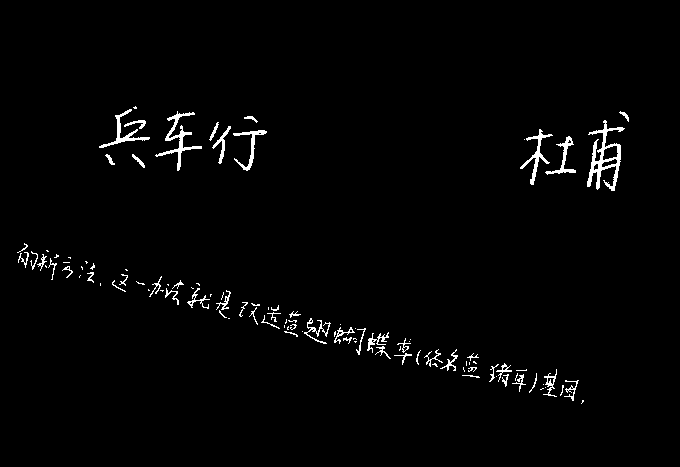 兵车行 杜甫
的新方法.这一办法就是改造蓝翅蝴蝶草(俗名蓝猪耳)基因,